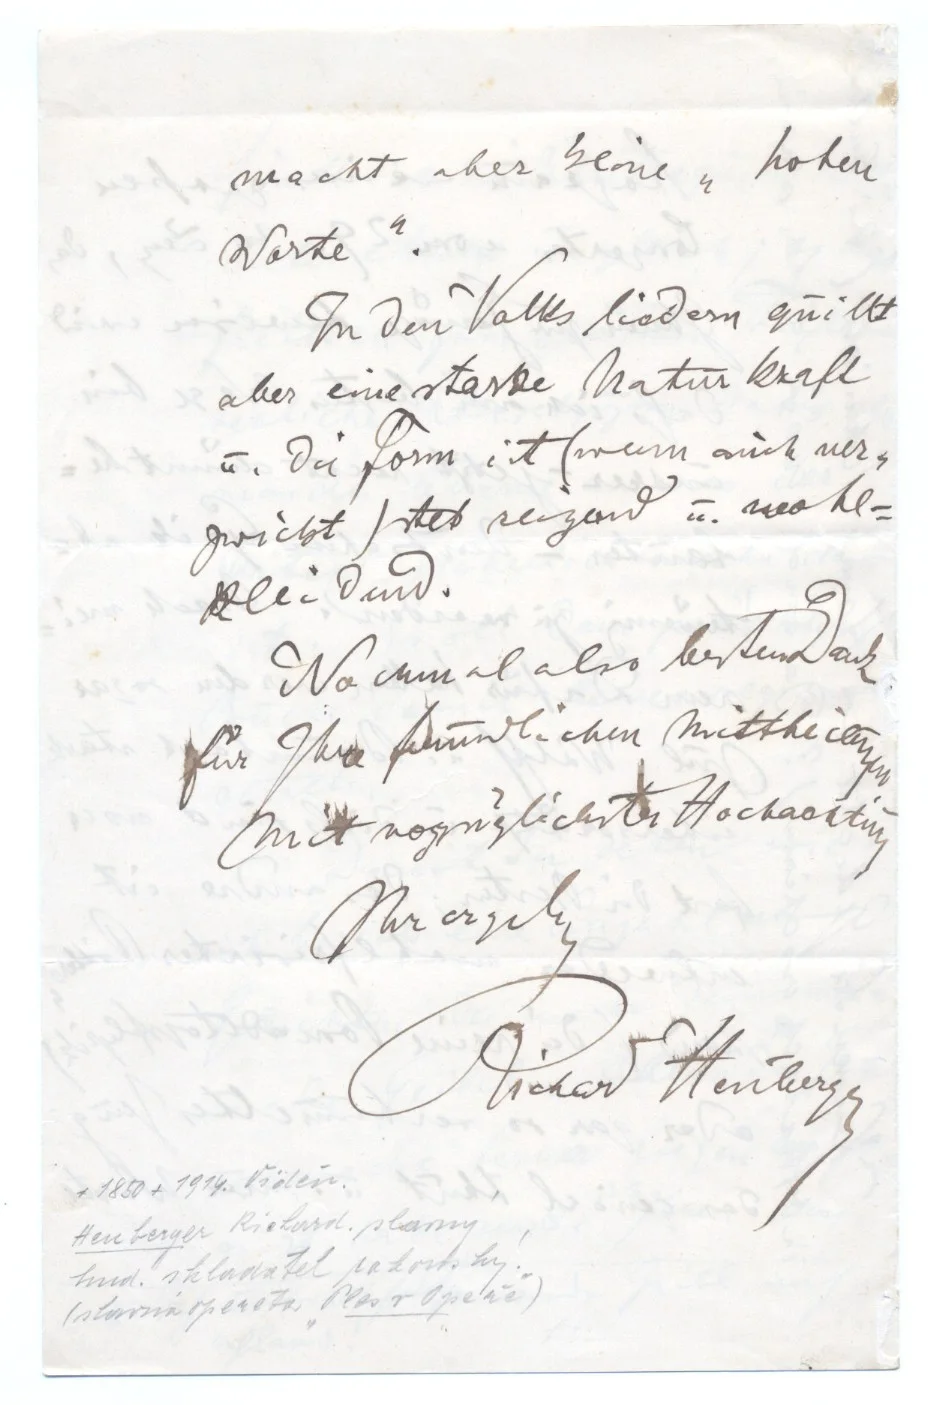 macht aber keine „hohen
Worte".
In den Volksliedern quillt
aber eine starke Naturkraft
u. die Form ist (wenn auch ver„
zwickt) stets reizend u. wohl=
kleidend.
Nochmal also besten Dank
für Ihre freundlichen Mittheilungen
Mit vorzüglichster Hochachtung
Ihr ergeb
Richard Heuberger
* 1850 + 1914. Vídeň.
Heuberger Richard. slavný
hud. skladatel rakouský.
(slavná opereta „Ples v Opeře")